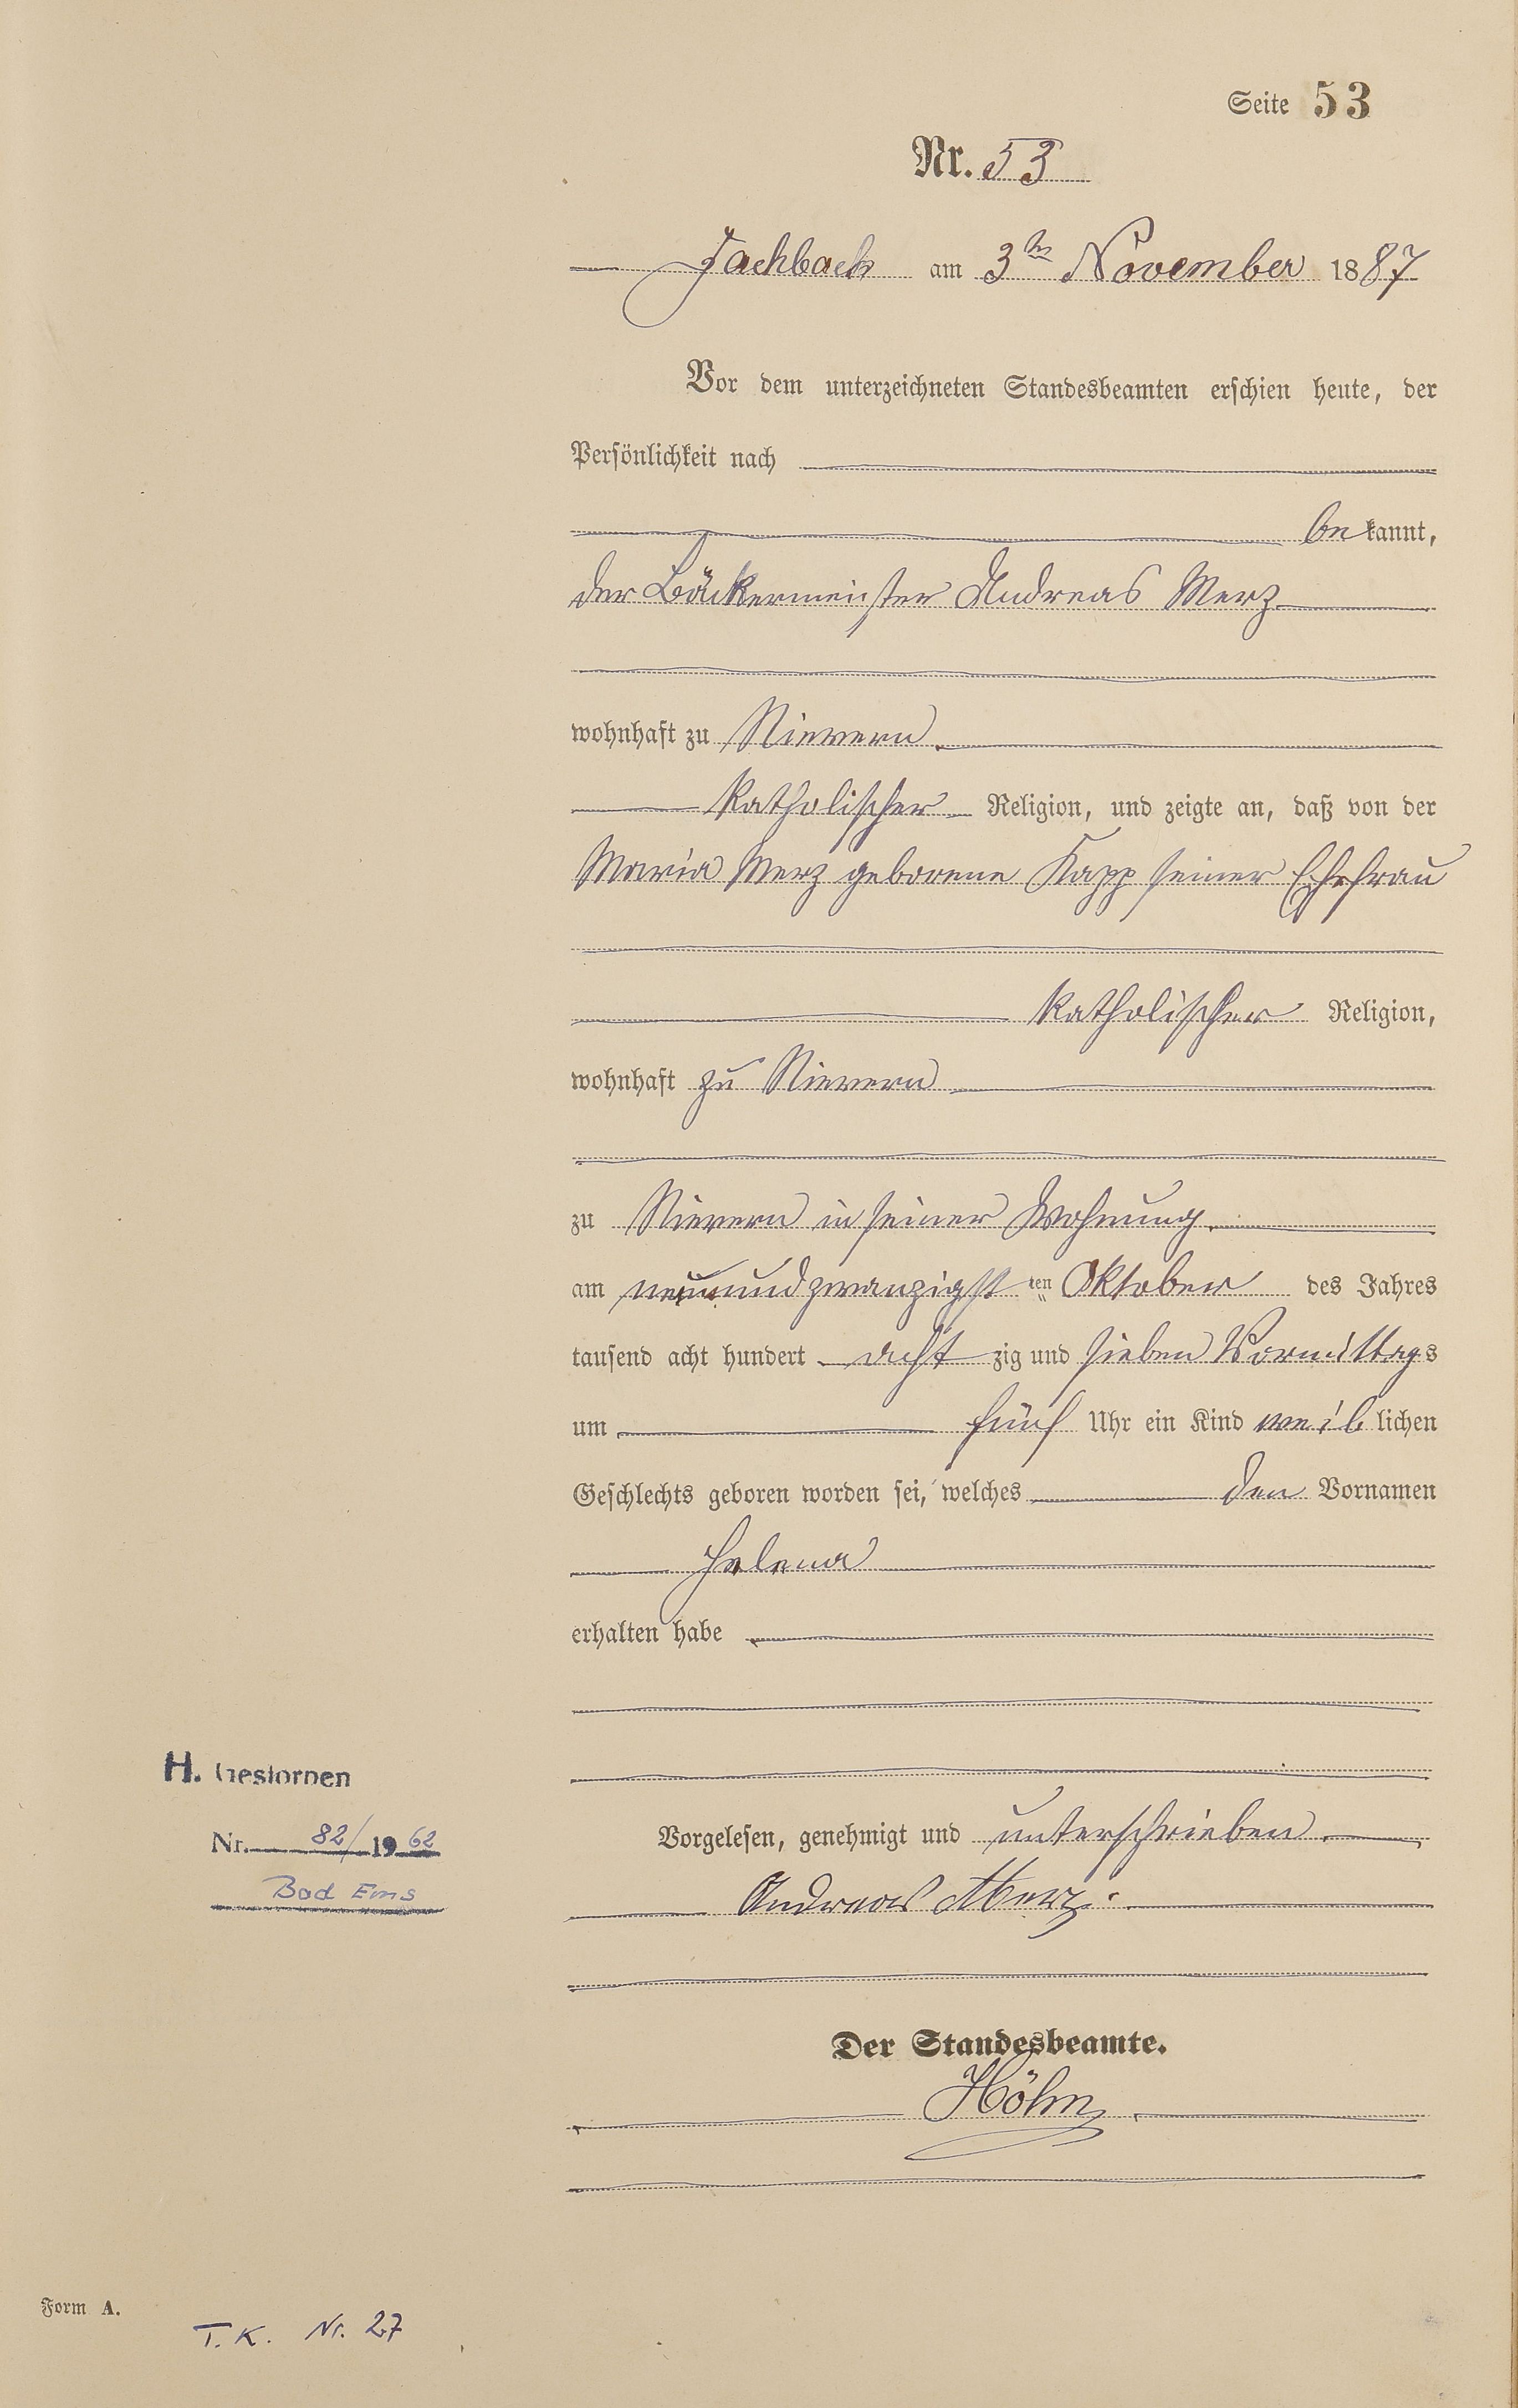 Seite 53
Nr. 53
Fachbach am 3ten November 1887
Vor dem unterzeichneten Standesbeamten erschien heute, der
Persönlichkeit nach
bekannt,
der Bäckermeister Andreas Merz
wohnhaft zu Nievern
katholischer Religion, und zeigte an, daß von der
Maria Merz geborene Kapp seiner Ehefrau
katholischer Religion,
wohnhaft zu Nievern
zu Nievern in seiner Wohnung.
am neunundzwanzigst ten Oktober des Jahres
tausend acht hundert acht zig und sieben Vormittags
um fünf Uhr ein Kind weiblichen
Geschlechts geboren worden sei, welches den Vornamen
Helena
erhalten habe
H. Gestorben
Nr. 82/1962
Bad Ems
Vorgelesen, genehmigt und unterschrieben.
Andreas Merz.
Der Standesbeamte.
Höhn
Form A.
T. K. Nr. 27